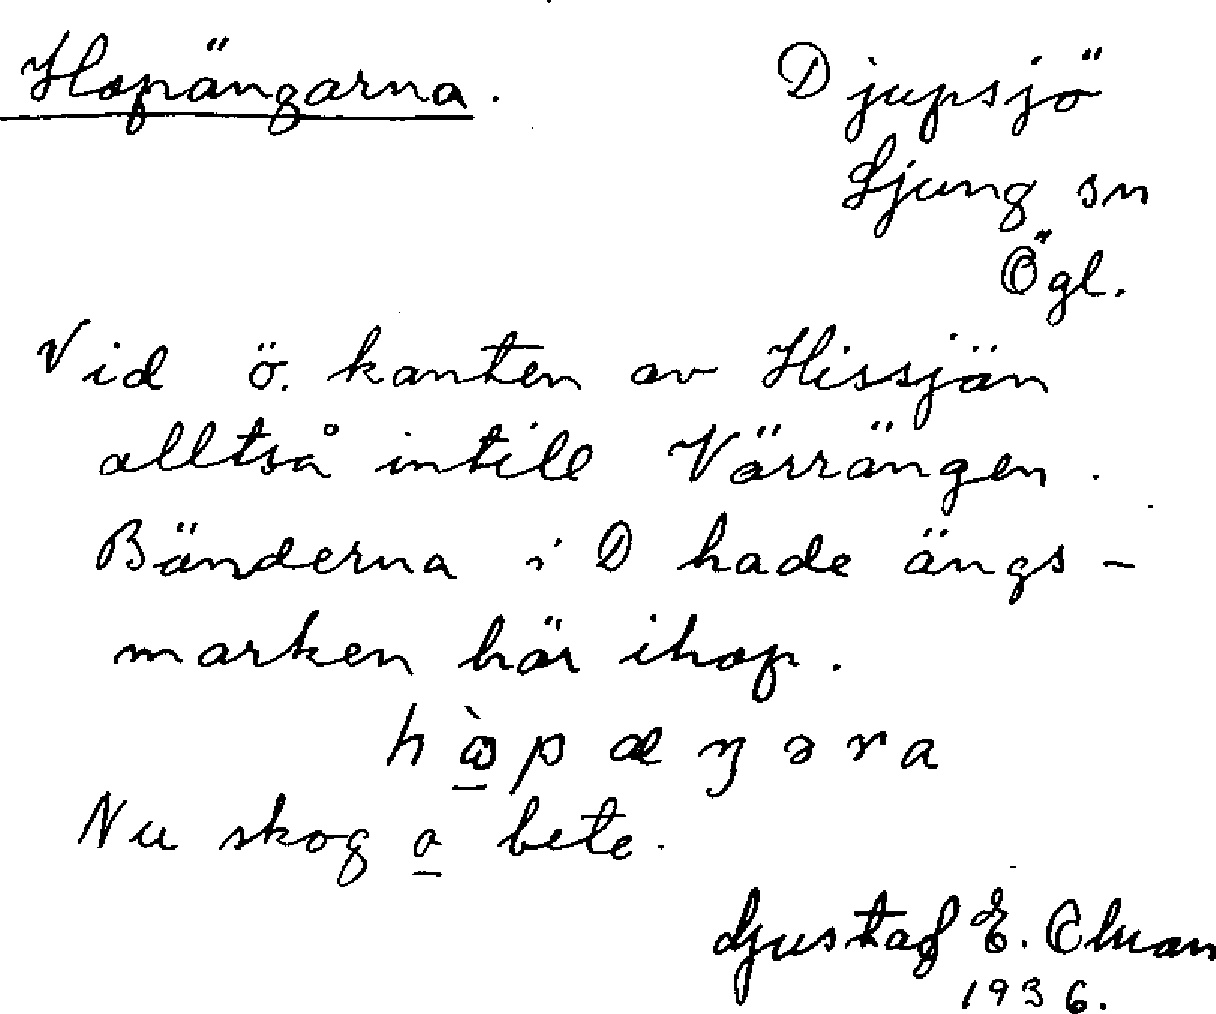 Hopängarna.
Djupsjö
Ljung sn
Ögl.
Vid ö. kanten av Hissjön
alltså intill Värrängen.
Bönderna i D hade ängs-
marken här ihop.
Nu skog o bete.
Gustaf E.
1936.